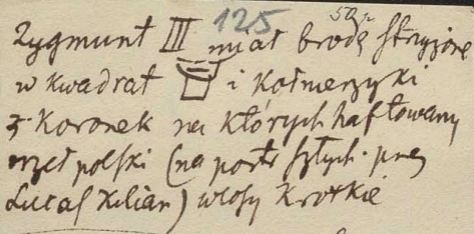 125
Zygmunt III miał brodę strzyżoną
w kwadrat i kołnierzyki
z koronek na których haftowany
orzeł polski (na portr sztych. przez
Lucas Kilian) włosy krótkie